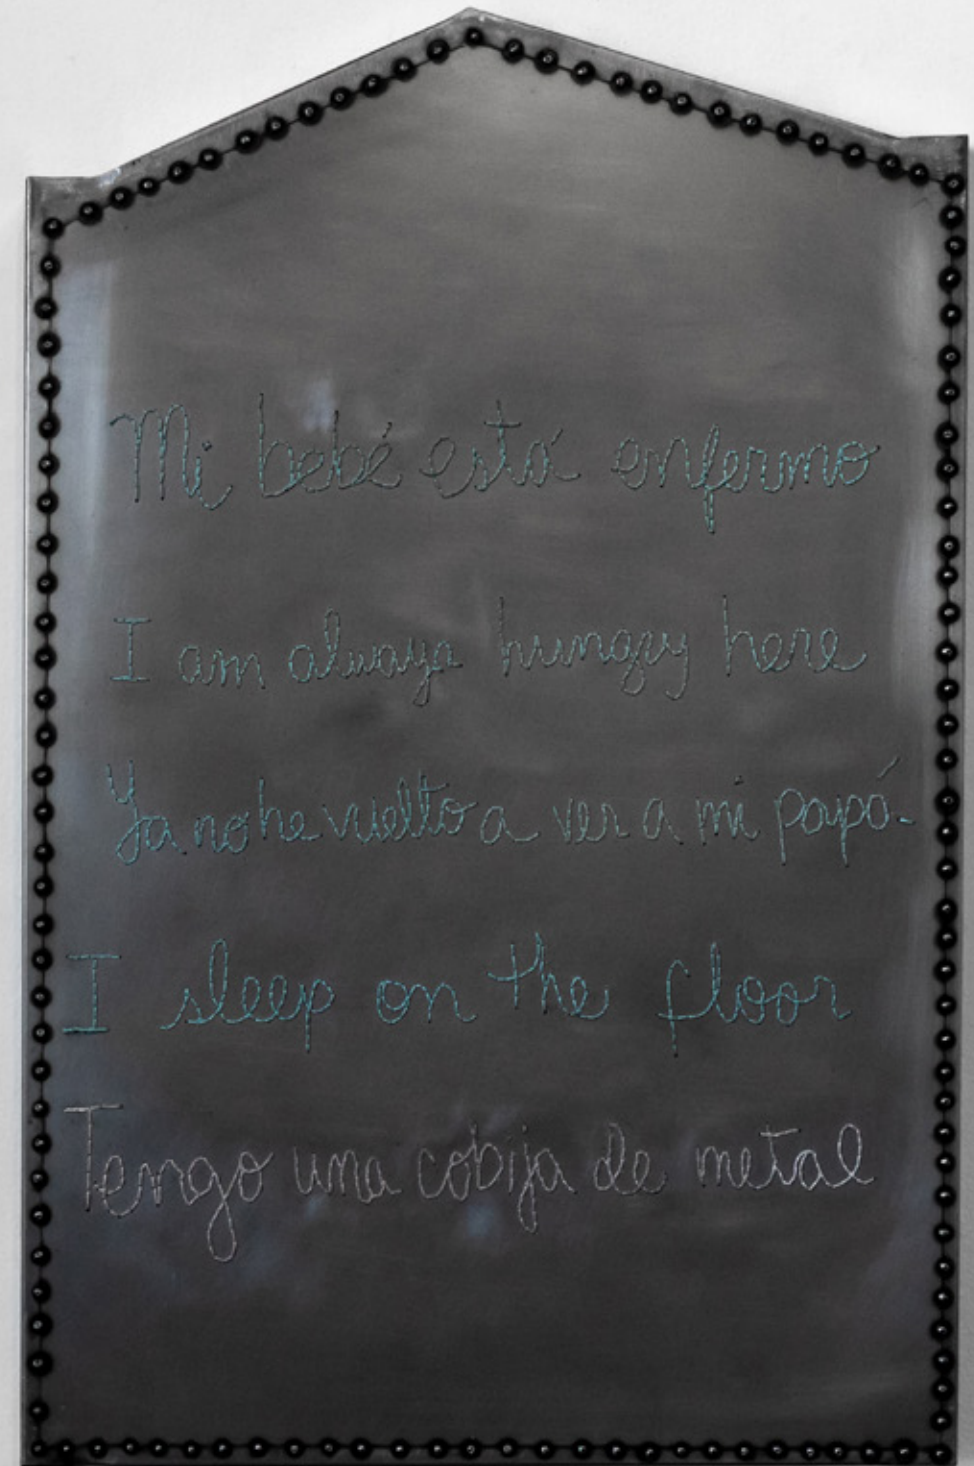 Mi bebé está enfermo
I am always hungry here
Ya no he vuelto a ver a mi papá.
I sleep on the floor
Tengo una cobija de metal